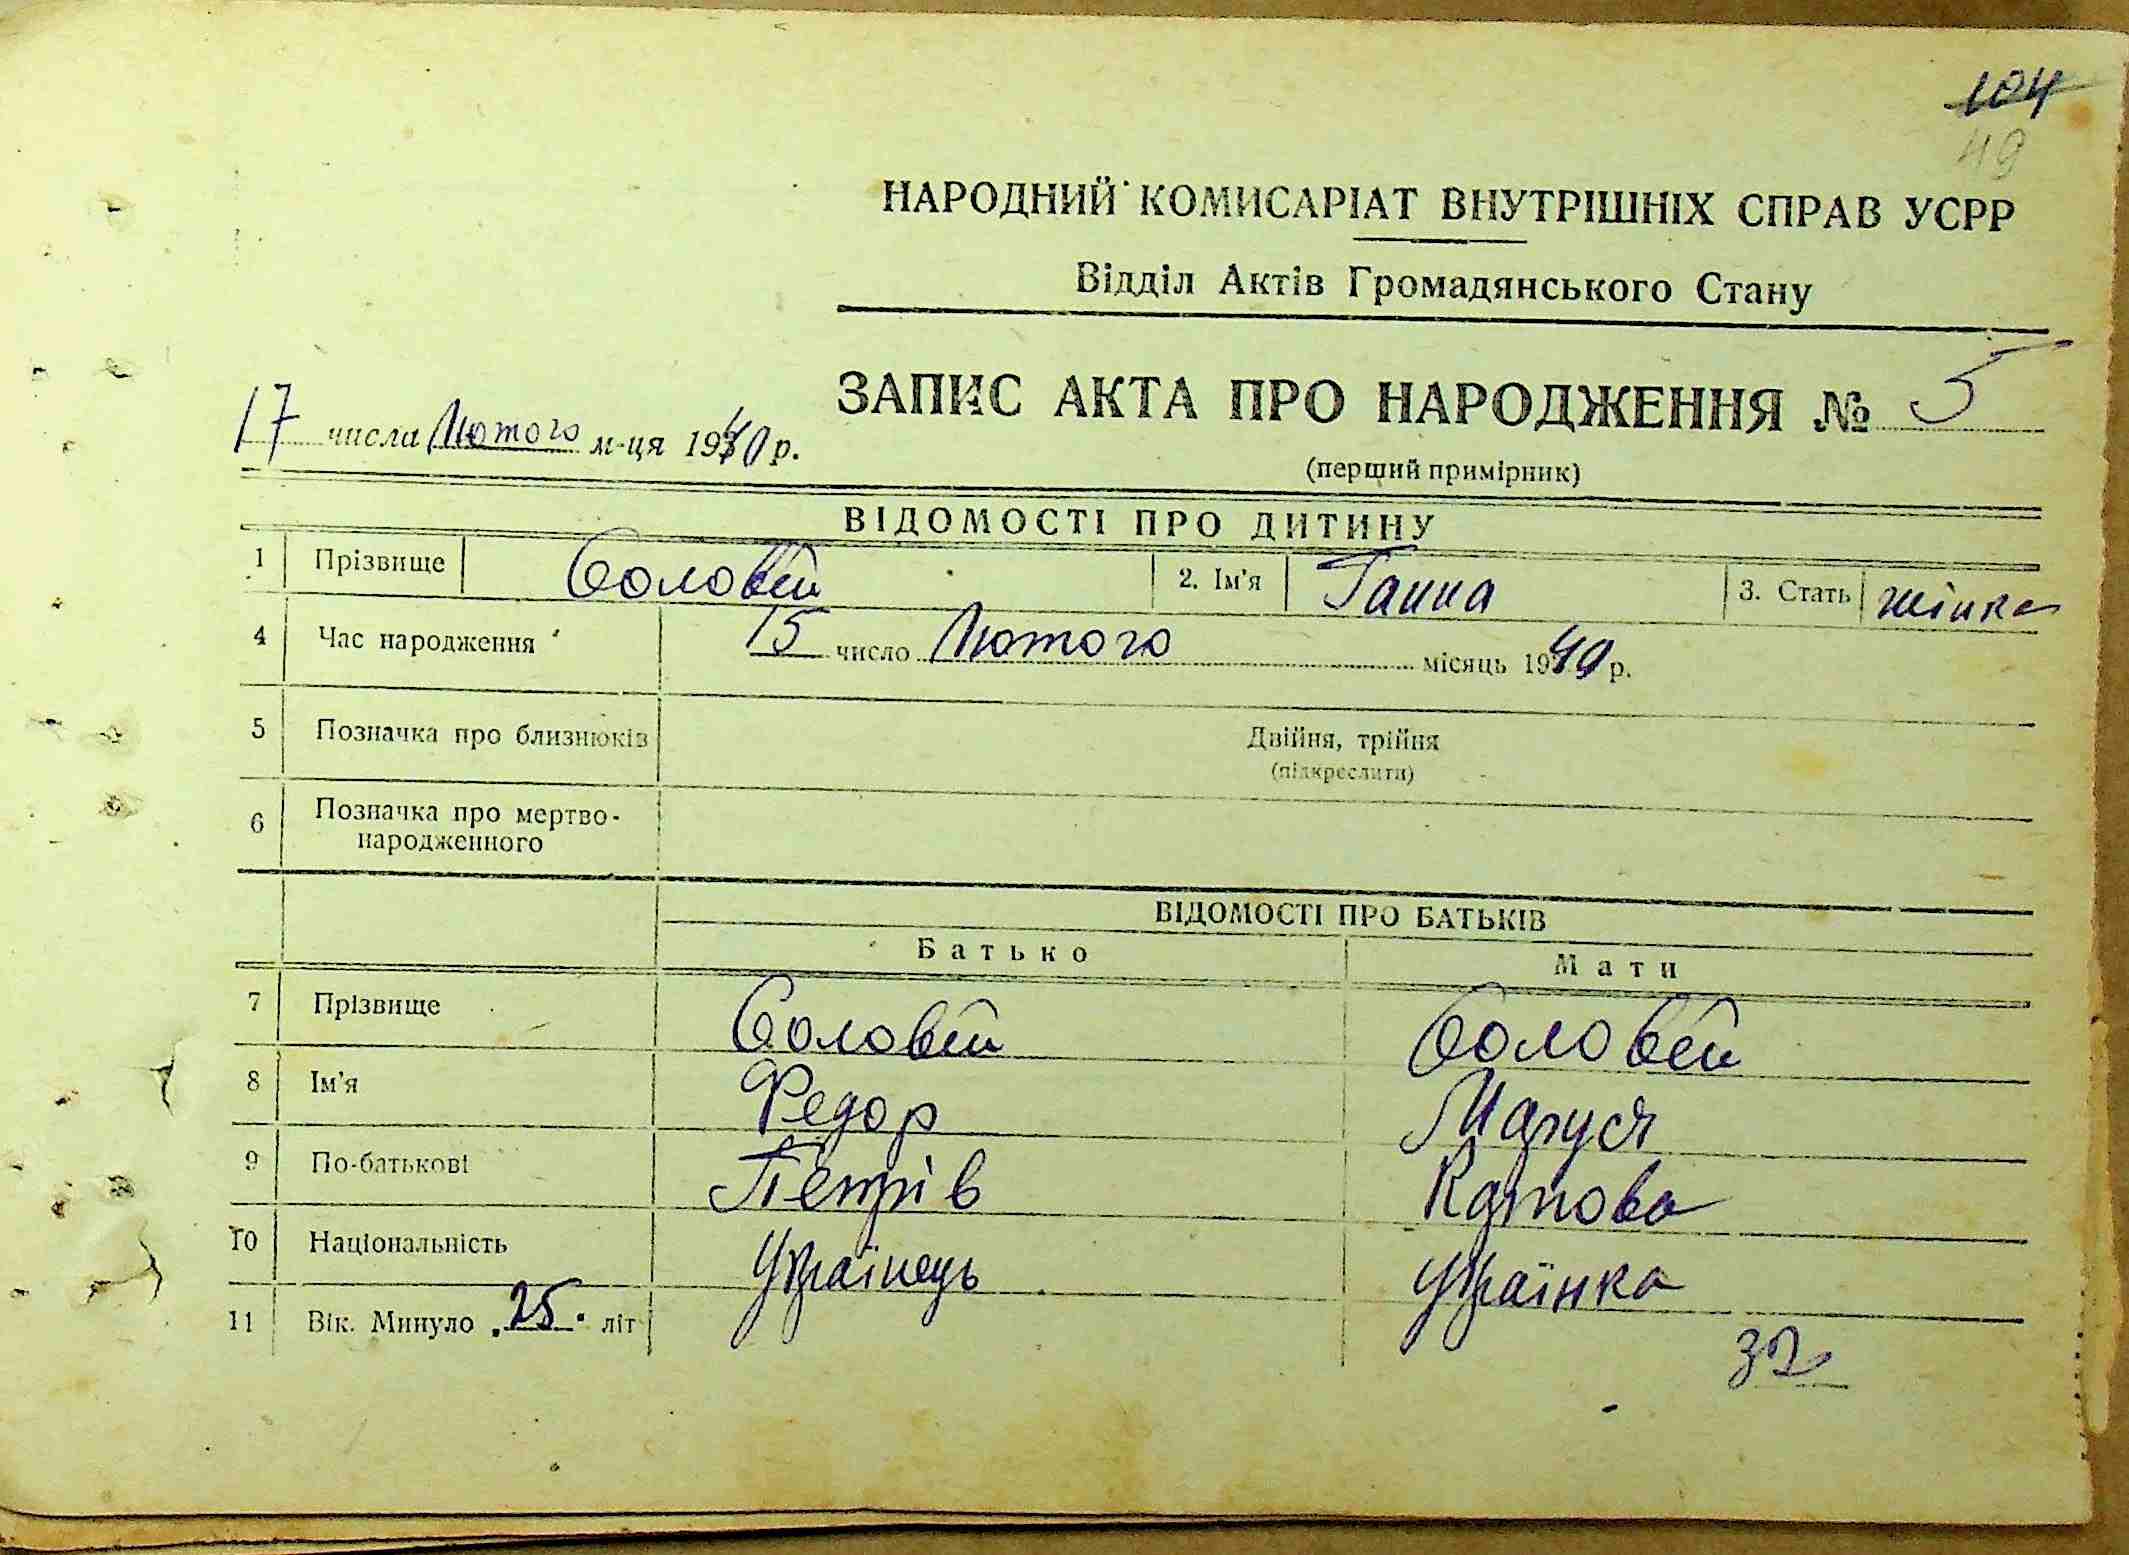 104
49
НАРОДНИЙ КОМИСАРІАТ ВНУТРІШНІХ СПРАВ УСРР
Відділ Актів Громадянського Стану
ЗАПИС АКТА ПРО НАРОДЖЕННЯ № 5
17 числа Лютого м-ця 1940 р.
(перший примірник)
ВІДОМОСТІ ПРО ДИТИНУ
1 Прізвище Соловей 2. Ім'я Ганна 3. Стать жінка
4 Час народження 15 число Лютого місяць 1940 р.
5 Позначка про близнюків Двійня, трійня
(підкреслити)
6 Позначка про мертво-
народженного
ВІДОМОСТІ ПРО БАТЬКІВ
Батько Мати
7 Прізвище Соловей Соловей
8 Ім'я Федор Маруся
9 По-батькові Петрів
10 Національність Українець Українка
11 Вік. Минуло 25 літ 32